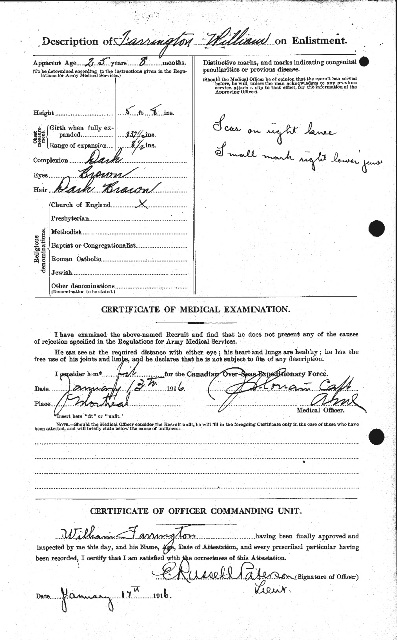 Description of Farrington William on Enlistment.
Apparent Age 25 years 8 months.
(To be determined according to the instructions given in the Regulations for Army Medical Services.)
Distinctive marks, and marks indicating congenital peculiarities or previous disease.
(Should the Medical Officer be of opinion that the recruit has served before, he will, unless the man acknowledges to any previous service, attach a slip to that effect, for the information of the Approving Officer).
Height 5 ft. 5 ins.
Chest measurement.
Girth when fully expanded ins.
Range of expansion ins.
Complexion Dark
Eyes Brown
Hair Dark Brown
Scar on right knee
Small mark right lower
Religious denominations.
Church of England X
Presbyterian
Methodist
Baptist or Congregationalist
Roman Catholic
Jewish
Other denominations
(Denomination to be stated.)
CERTIFICATE OF MEDICAL EXAMINATION.
I have examined the above-named Recruit and find that he does not present any of the causes
of rejection specified in the Regulations for Army Medical Services.
He can see at the required distance with either eye; his heart and lungs are healthy; he has the
free use of his joints and limbs, and he declares that he is not subject to fits of any description.
I consider him* fit for the Canadian Over-Seas Expeditionary Force.
Date January 1916
Place Montreal
Capt
Medical Officer.
*Insert here "fit" or "unfit."
NOTE.—Should the Medical Officer consider the Recruit unfit, he will fill in the foregoing Certificate only in the case of those who have been attested, and will briefly state below the cause of unfitness:—
CERTIFICATE OF OFFICER COMMANDING UNIT.
William Farrington having been finally approved and
inspected by me this day, and his Name, Age, Date of Attestation, and every prescribed particular having
been recorded, I certify that I am satisfied with the correctness of this Attestation.
E Russell Paterson (Signature of Officer)
Lieut.
Date January 17th 1916.